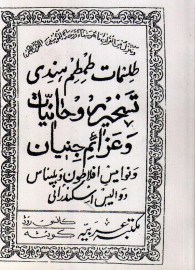 طلسمات طمطم هندی
تسخیر روحانیات
و عزائم جنیان
و نوامیس افلاطون و بلیناس
و والیس اسکندرانی
مکتبہ عربیہ
کانسی روڈ
کوئٹہ